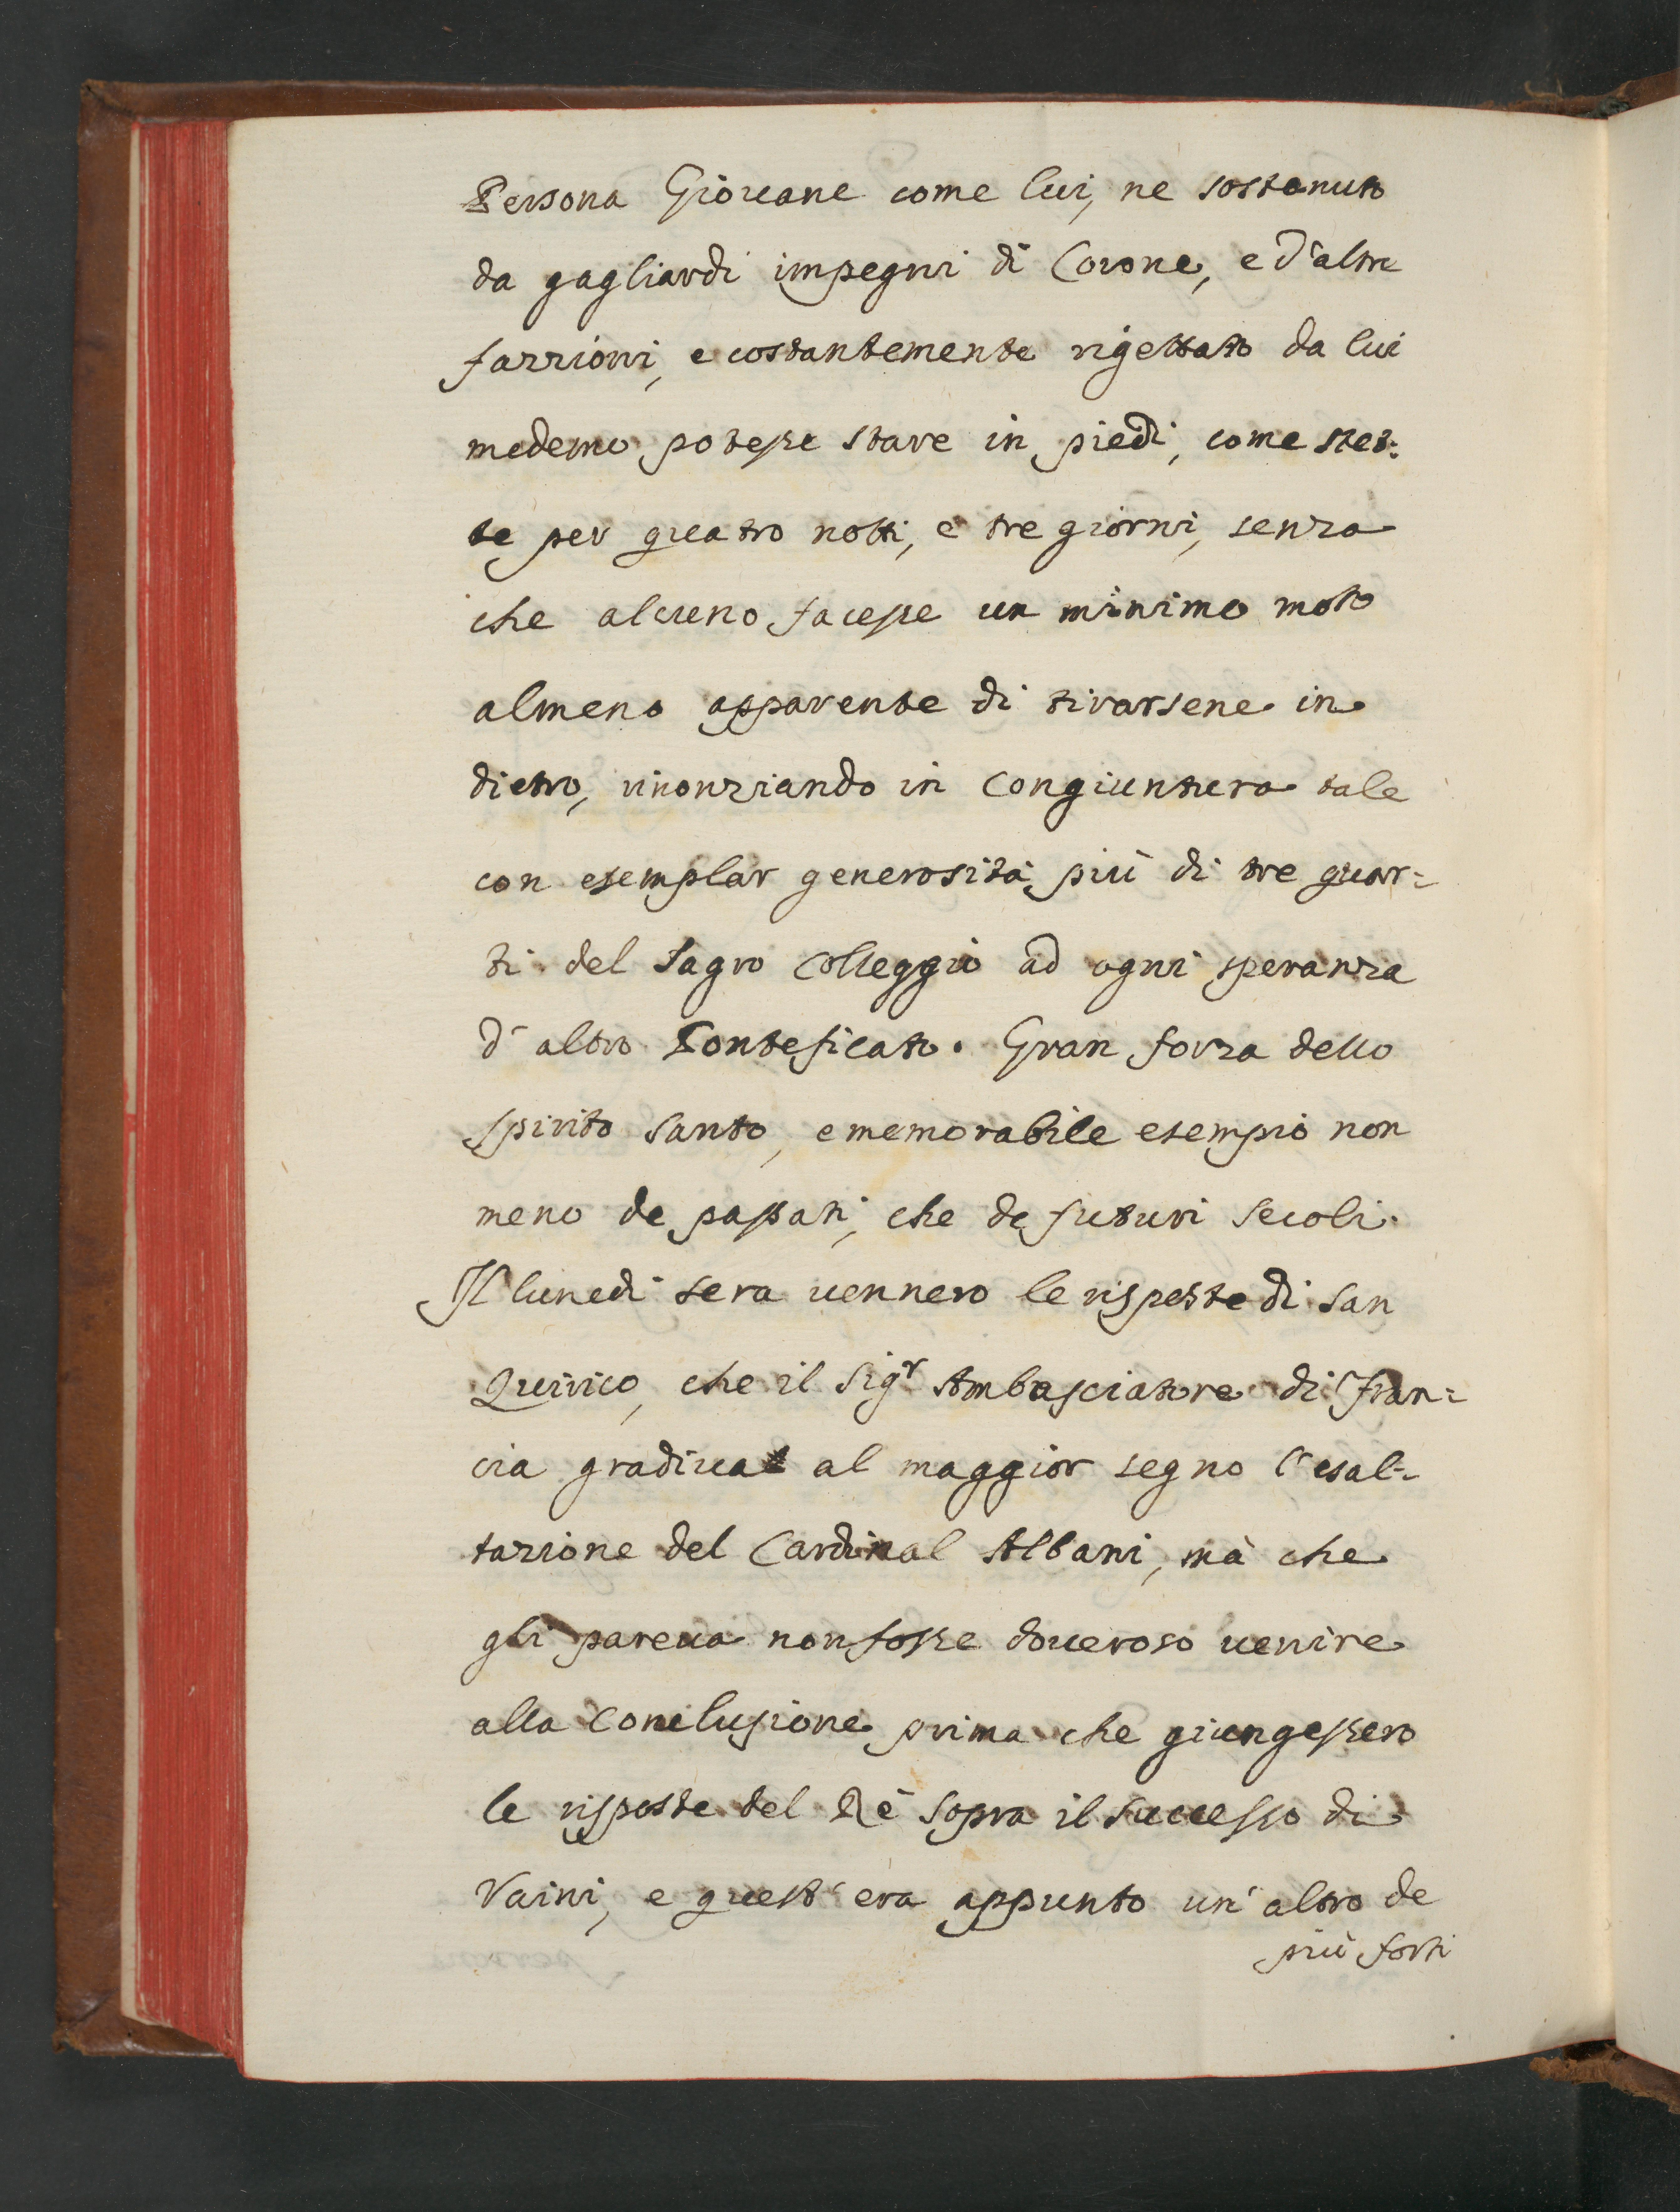 Persona Giouane come lui, ne sostenuto
da gagliardi impegni di Corone, e d'altre
fazzioni, e costantemente rigettato da lui
medemo potesse stare in piedi, come stet:
te per quatro notti, e tre giorni, senza
che alcuno facesse un minimo moto
almeno apparente di tirarsene in
dietro, rinonziando in congiuntura tale
con esemplar generosità più di tre quar=
ti del Sagro Colleggio ad ogni speranza
d'altro Ponteficato. Gran forza dello
spirito santo, e memorabile esempio non
meno de passati, che de futuri secoli.
Il lunedi sera uennero le risposte di San
Quirico, che il Sigr Ambasciatore di Fran=
cia gradiua al maggior segno l'esal=
tazione del Cardinal Albani, mà che
gli pareua non fosse doueroso uenire
alla Conclusione prima che giungessero
le risposte del Rè sopra il successo di
Vaini, e quest'era appunto un'altro de
più forti